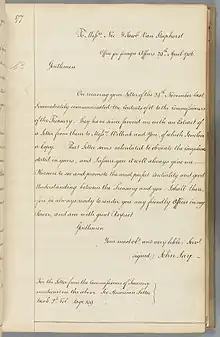 57
To Messrs. Nic. & Jacob Van Staphorst
Office for foreign Affairs 28th. April 1786
Gentlemen
On receiving your Letter of the 28th. November last
I immediately communicated the contents of it to the Commissioners
of the Treasury. They have since favored me with an Extract of
a Letter from them to Messrs. Willink and You, of which I enclose
a Copy. That Letter seems calculated to obviate the
stated in yours, and I assure you it will always give me
Pleasure to see and promote the most perfect cordiality and good
Understanding between the Treasury and you. I shall there-
fore be always ready to render you any friendly Offices in my
Power, and am with great Respect
Gentlemen
Your most obt. and very hble. Servt.
signed/ John Jay.
For the Letter from the Commissioners of Treasury
mentioned in the above See American Letter
Book 2d. Vol. Page